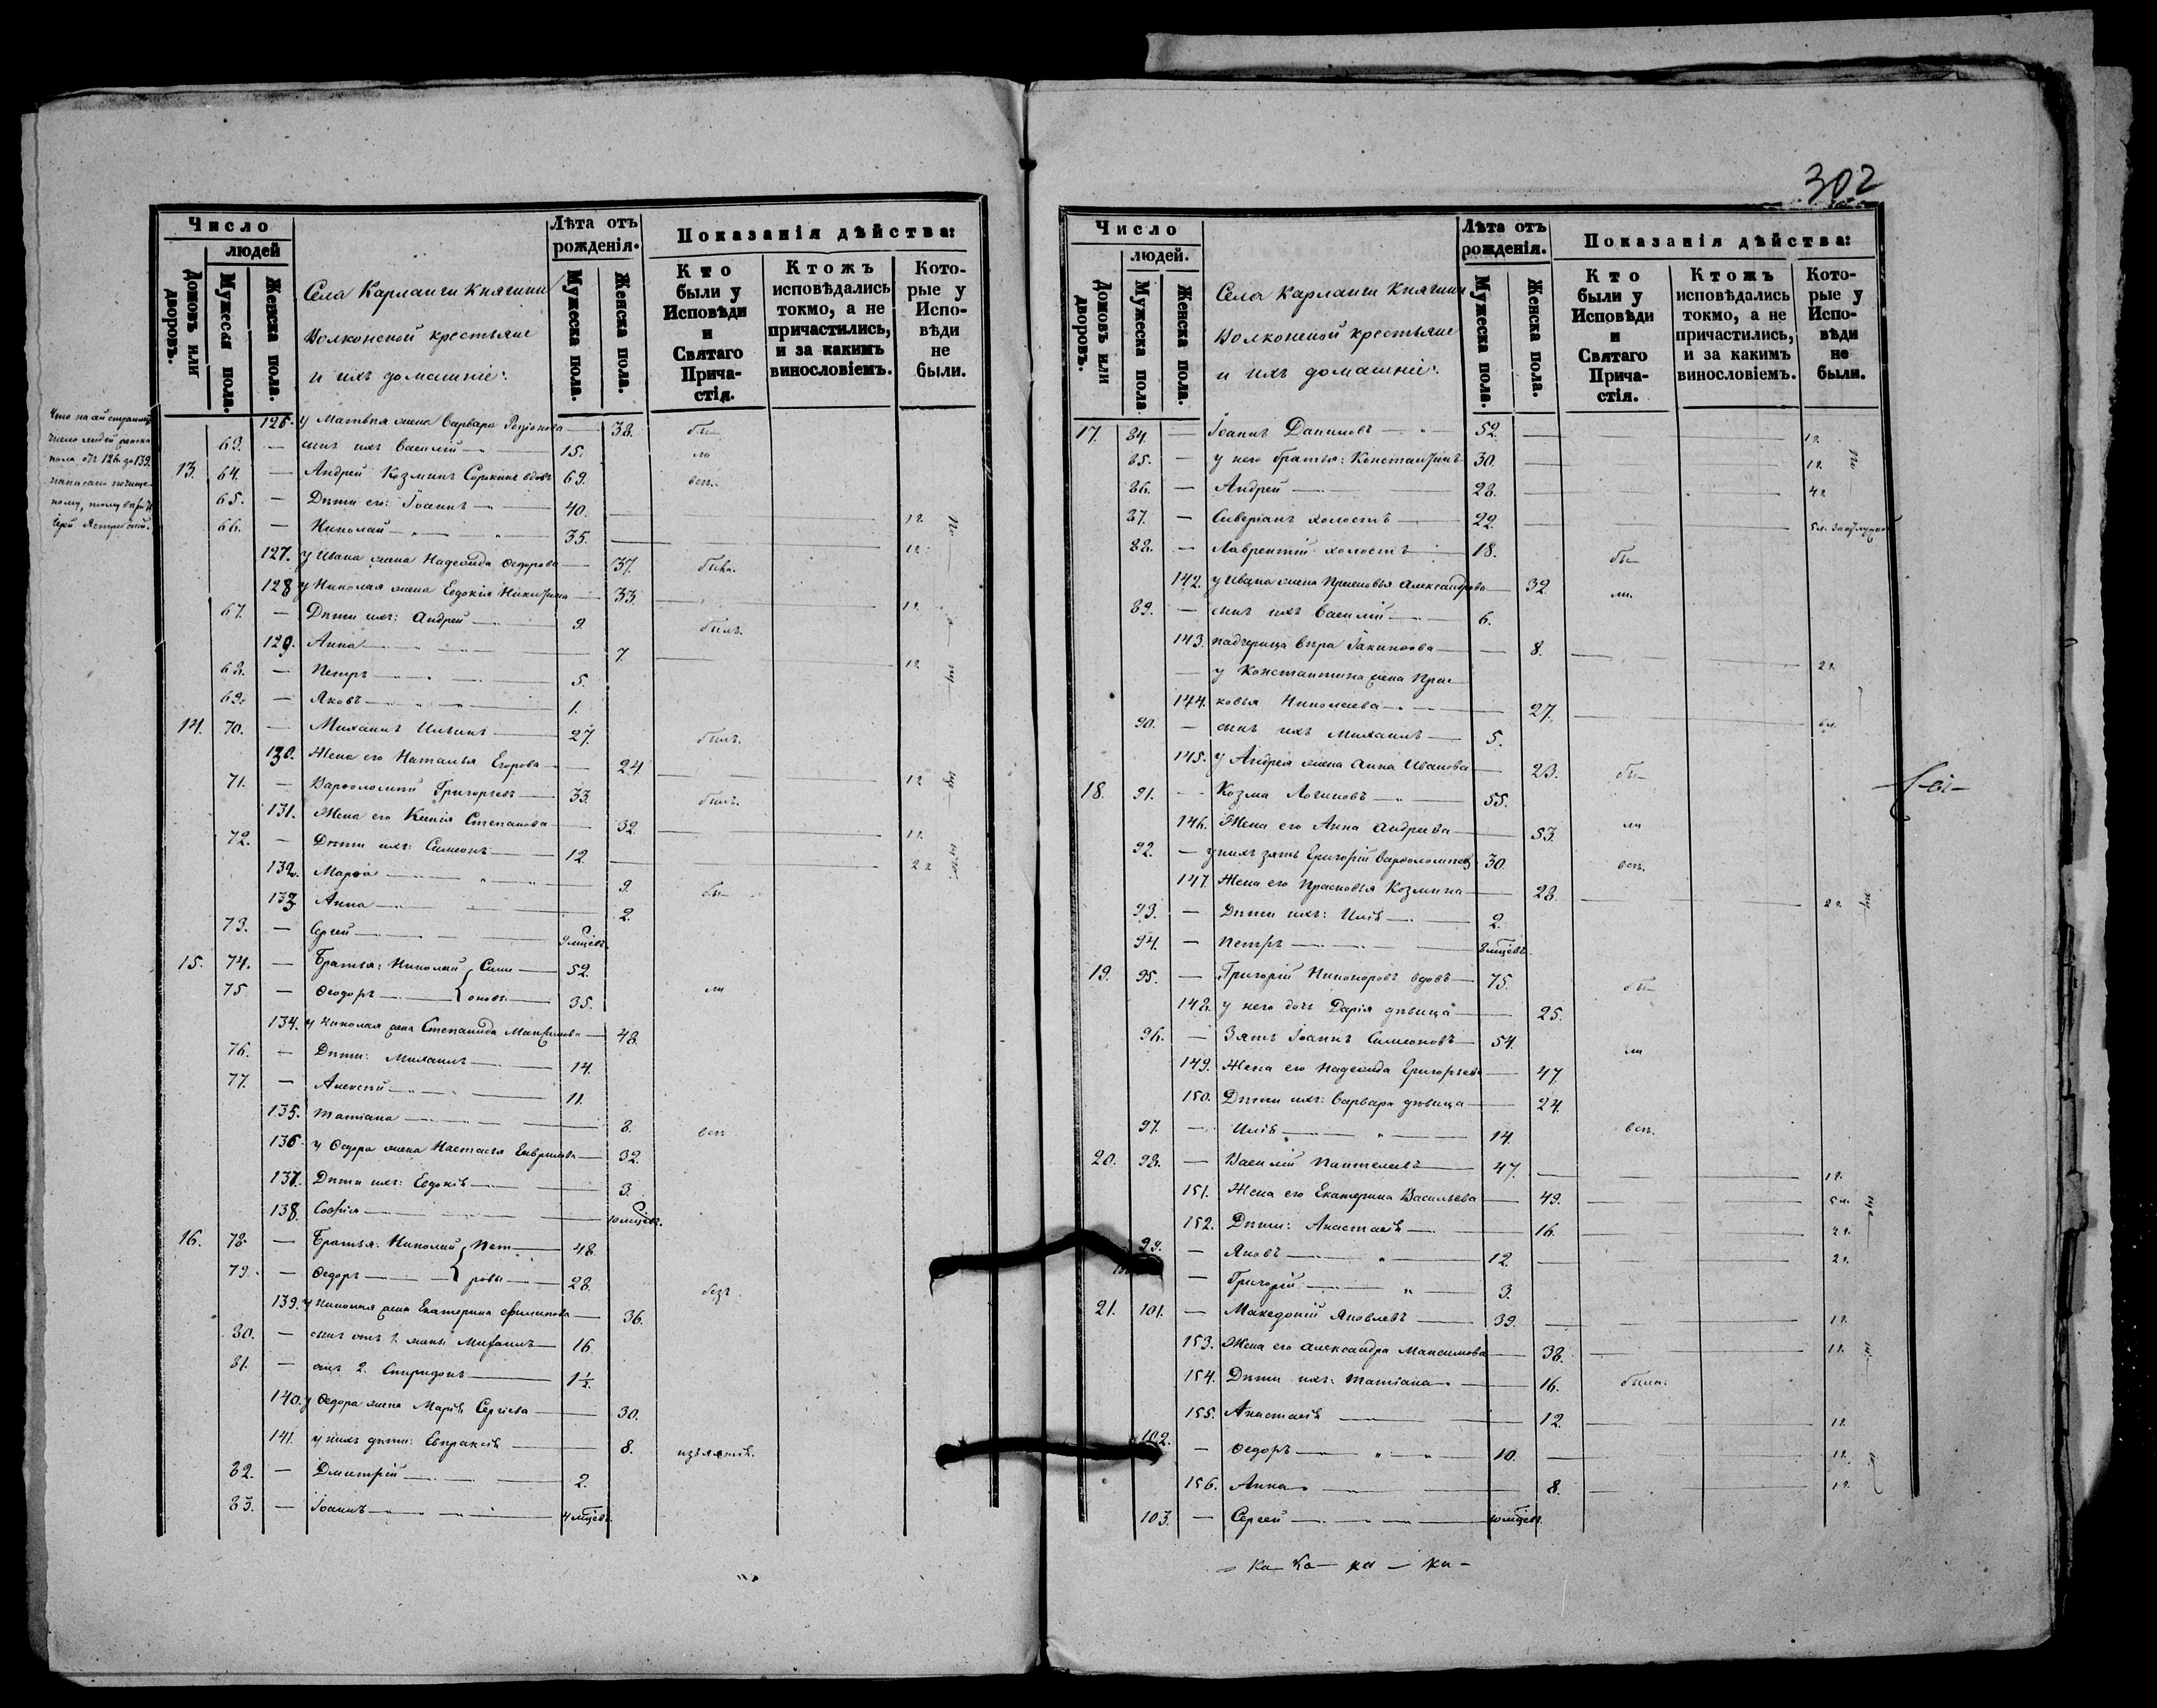 302
Число
людей
Домовъ или дворовъ.
Мужеска пола.
Женска пола.
Села Карланги Княгини
Волконской крестьяне
и ихъ домашніе:
Лѣта отъ рожденія.
Мужеска пола.
Женска пола.
Показанія дѣйства:
Кто были у Исповѣди и Святаго Причастія.
Ктожъ исповѣдались токмо, а не причастились, и за какимъ винословіемъ.
Которые у Исповѣди не были.
126. у Матвѣя жена Варвара Родіонова — 38. бы—
63. — сынъ ихъ Василій — 15. ли
13. 64. — Андрей Козминъ Сорокинъ вдовъ 69. всѣ.
65. — Дѣти его: Іоаннъ — 40. — 1 г.
66. — Николай — 35. — 1 г.
127. у Ивана жена Надежда Федорова — 37. была.
128 у Николая жена Евдокія Никитина — 33. — 1 г.
67. — Дѣти ихъ: Андрей — 9. былъ.
129. Анна — 7. — 1 г.
68. — Петръ — 5.
69. — Яковъ — 1.
14. 70. — Михаилъ Ильинъ — 27. былъ.
130. Жена его Наталья Егорова — 24 — 1 г.
71. — Варѳоломей Григорьевъ — 33. былъ.
131. Жена его Ксенія Степанова — 32. — 1 г.
72. — Дѣти ихъ: Симеонъ — 12. — 2 г.
132. Марѳа — 9. бы—
133 Анна — 2.
73. — Сергей — 9 мцевъ.
15. 74. — Братья: Николай { Симе — 52.
75 — Ѳеодоръ — { оновы — 35. ли
134. у Николая жена Степанида Максимова — 48.
76. — Дѣти: Михаилъ — 14.
77. — Алексѣй — 11.
135. Татіана — 8. всѣ
136. у Ѳедора жена Настасья Гаврилова — 32.
137. Дѣти ихъ: Евдокія — 3.
138. Софія — 10 мцевъ.
16. 78. — Братья: Николай { Пет — 48.
79. — Ѳедоръ — { ровы — 28. безъ
139. у Николая жена Екатерина Филипова — 36.
80. — сынъ отъ 1. жены Михаилъ — 16.
81. — отъ 2. Спиридонъ — 1 1/2.
140. у Ѳедора жена Марія Сергіева — 30.
141. у нихъ дѣти: Евпраксія — 8. изъятія.
82. — Димитрій — 2.
83. — Іоаннъ — 4 мцевъ.
Число
людей.
Домовъ или дворовъ.
Мужеска пола
Женска пола.
Села Карланги Княгини
Волконской крестьяне
и ихъ домашніе:
Лѣта отъ рожденія.
Мужеска пола.
Женска пола.
Показанія дѣйства:
Кто были у Исповѣди и Святаго Причастія.
Ктожъ исповѣдались токмо, а не причастились, и за какимъ винословіемъ.
Которые у Исповѣди не были.
17. 84. — Іоаннъ Даниловъ — 52. — 1 г.
85. — у него братья: Константинъ 30. — 1 г.
86. — Андрей — 28. — 4 г.
87. — Сиверіанъ холостъ — 22. — 5 л.
88. — Лаврентій холостъ — 18. бы—
142. у Ивана жена Прасковья Александрова — 32. ли.
89. — сынъ ихъ Василій — 6.
143. падчерица Вѣра Іакинѳова — 8. — 2 г.
— у Константина жена Прас
144. ковья Николаева — 27. — 6 л.
90. — сынъ ихъ Михаилъ — 5.
145. у Андрея жена Анна Иванова — 23. бы—
18. 91. — Козма Логиновъ — 55.
146. Жена его Анна Андреева — 53. ли
92. — у нихъ зять Григорій Варѳоломеевъ 30. всѣ.
147. Жена его Прасковья Козмина — 28. — 2 г.
93. — Дѣти ихъ: Илія — 2.
94. — Петръ — 8 мцевъ.
19. 95. — Григорій Никоноровъ вдовъ — 75. бы—
148. у него дочь Дарія дѣвица — 25.
96. — Зять Іоаннъ Симеоновъ — 54. ли
149. Жена его Надежда Григорьева — 47.
150. Дѣти ихъ: Варвара дѣвица — 24.
97. — Илія — 14. всѣ.
20. 98. — Василій Пантелеевъ — 47. — 1 г.
151. Жена его Екатерина Васильева — 49. — 5 л.
152. Дѣти: Анастасія — 16. — 2 г.
99. — Яковъ — 12. — 2 г.
— Григорій — 3.
21. 101. — Македоній Яковлевъ — 39. — 1 г.
153. Жена его Александра Максимова — 38. — 1 г.
154. Дѣти ихъ: Татіана — 16. была.
155. Анастасія — 12. — 1 г.
102. — Ѳедоръ — 10. — 1 г.
156. Анна — 8. — 1 г.
103. — Сергей — 10 мцевъ.